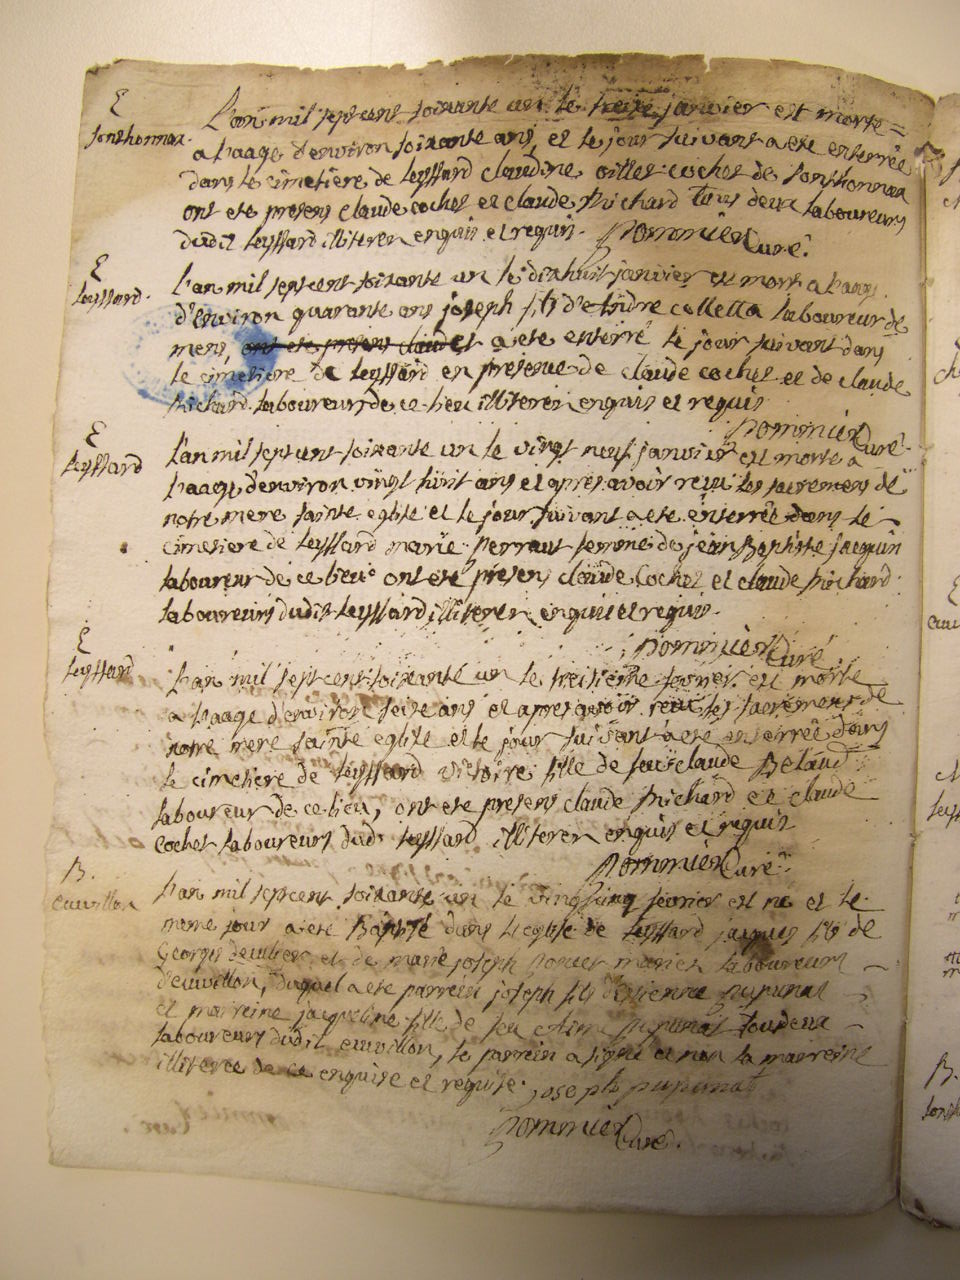 E
sonthonnax
L'an mil sept cent soixante un le treize janvier est morte
a l'aage d'environ soixante ans, et le jour suivant a ete enterrée
dans le cimetiere de leyssard claudine cochet de sonthonnax
ont ete presens claude cochet et claude Michard tous deux laboureurs
dudit leyssard illiteren enquis et requis. Pommier Curé.
E
leyssard.
l'an mil sept cent soixante un le dixhuit janvier est mort a l'aage
d'environ quarante ans joseph fils d'Andre colletta laboureur de
mens, ont ete presens claude et a ete enterré le jour suivant dans
le cimetiere de leyssard en presence de claude cochet et de claude
Michard laboureurs de ce lieu illiteren enquis et requis
Pommier Curé.
E
leyssard
l'an mil sept cent soixante un le vingt neuf janvier est morte a
l'aage d'environ vingt huit ans et apres avoir reçu les sacremens de
notre mere sainte eglise et le jour suivant a ete enterrée dans le
cimetiere de leyssard marie Perraut femme de jean Baptiste jacquin
laboureur de ce lieu ont ete presens claude Cochet et claude Michard
laboureurs dudit leyssard illiteren enquis et requis.
Pommier Curé
E
leyssard
l'an mil sept cent soixante un le treisième fevrier est morte
a l'aage d'environ seise ans et apres avoir reçu les sacremens de
notre mere sainte eglise et le jour suivant a ete enterrée dans
le cimetiere de leyssard victoire fille de feu claude Belaud
laboureur de ce lieu, ont ete presens claude Michard et claude
cochet laboureurs dud. leyssard illiteren enquis et requis
Pommier Curé
B.
Cuivillon
l'an mil sept cent soixante un le vingcinq fevrier est né et le
meme jour a ete Baptisé dans l'eglise de leyssard jacques fils de
George et de marie joseph mariés laboureurs
d'euvillon, duquel a ete parrein joseph fils d'Estienne pupunat
et marreine jacqueline fille de feu pupunat tous deux
laboureurs dudit euvillon, le parrein a signé et non la marreine
illiteree de ce enquise et requise. joseph pupunat
Pommier Curé.